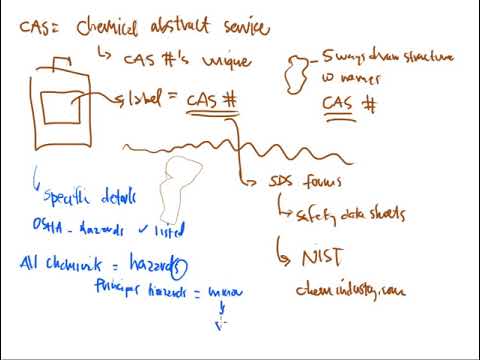 CAS = Chemical abstract service
CAS #'s unique
5 ways draw structure
10 names
CAS #
label = CAS #
SDS forms
safety data sheets
NIST
chemindustry.com
Specific details
OSHA - hazards ✓ listed
All chemicals = hazards
Principal hazards =